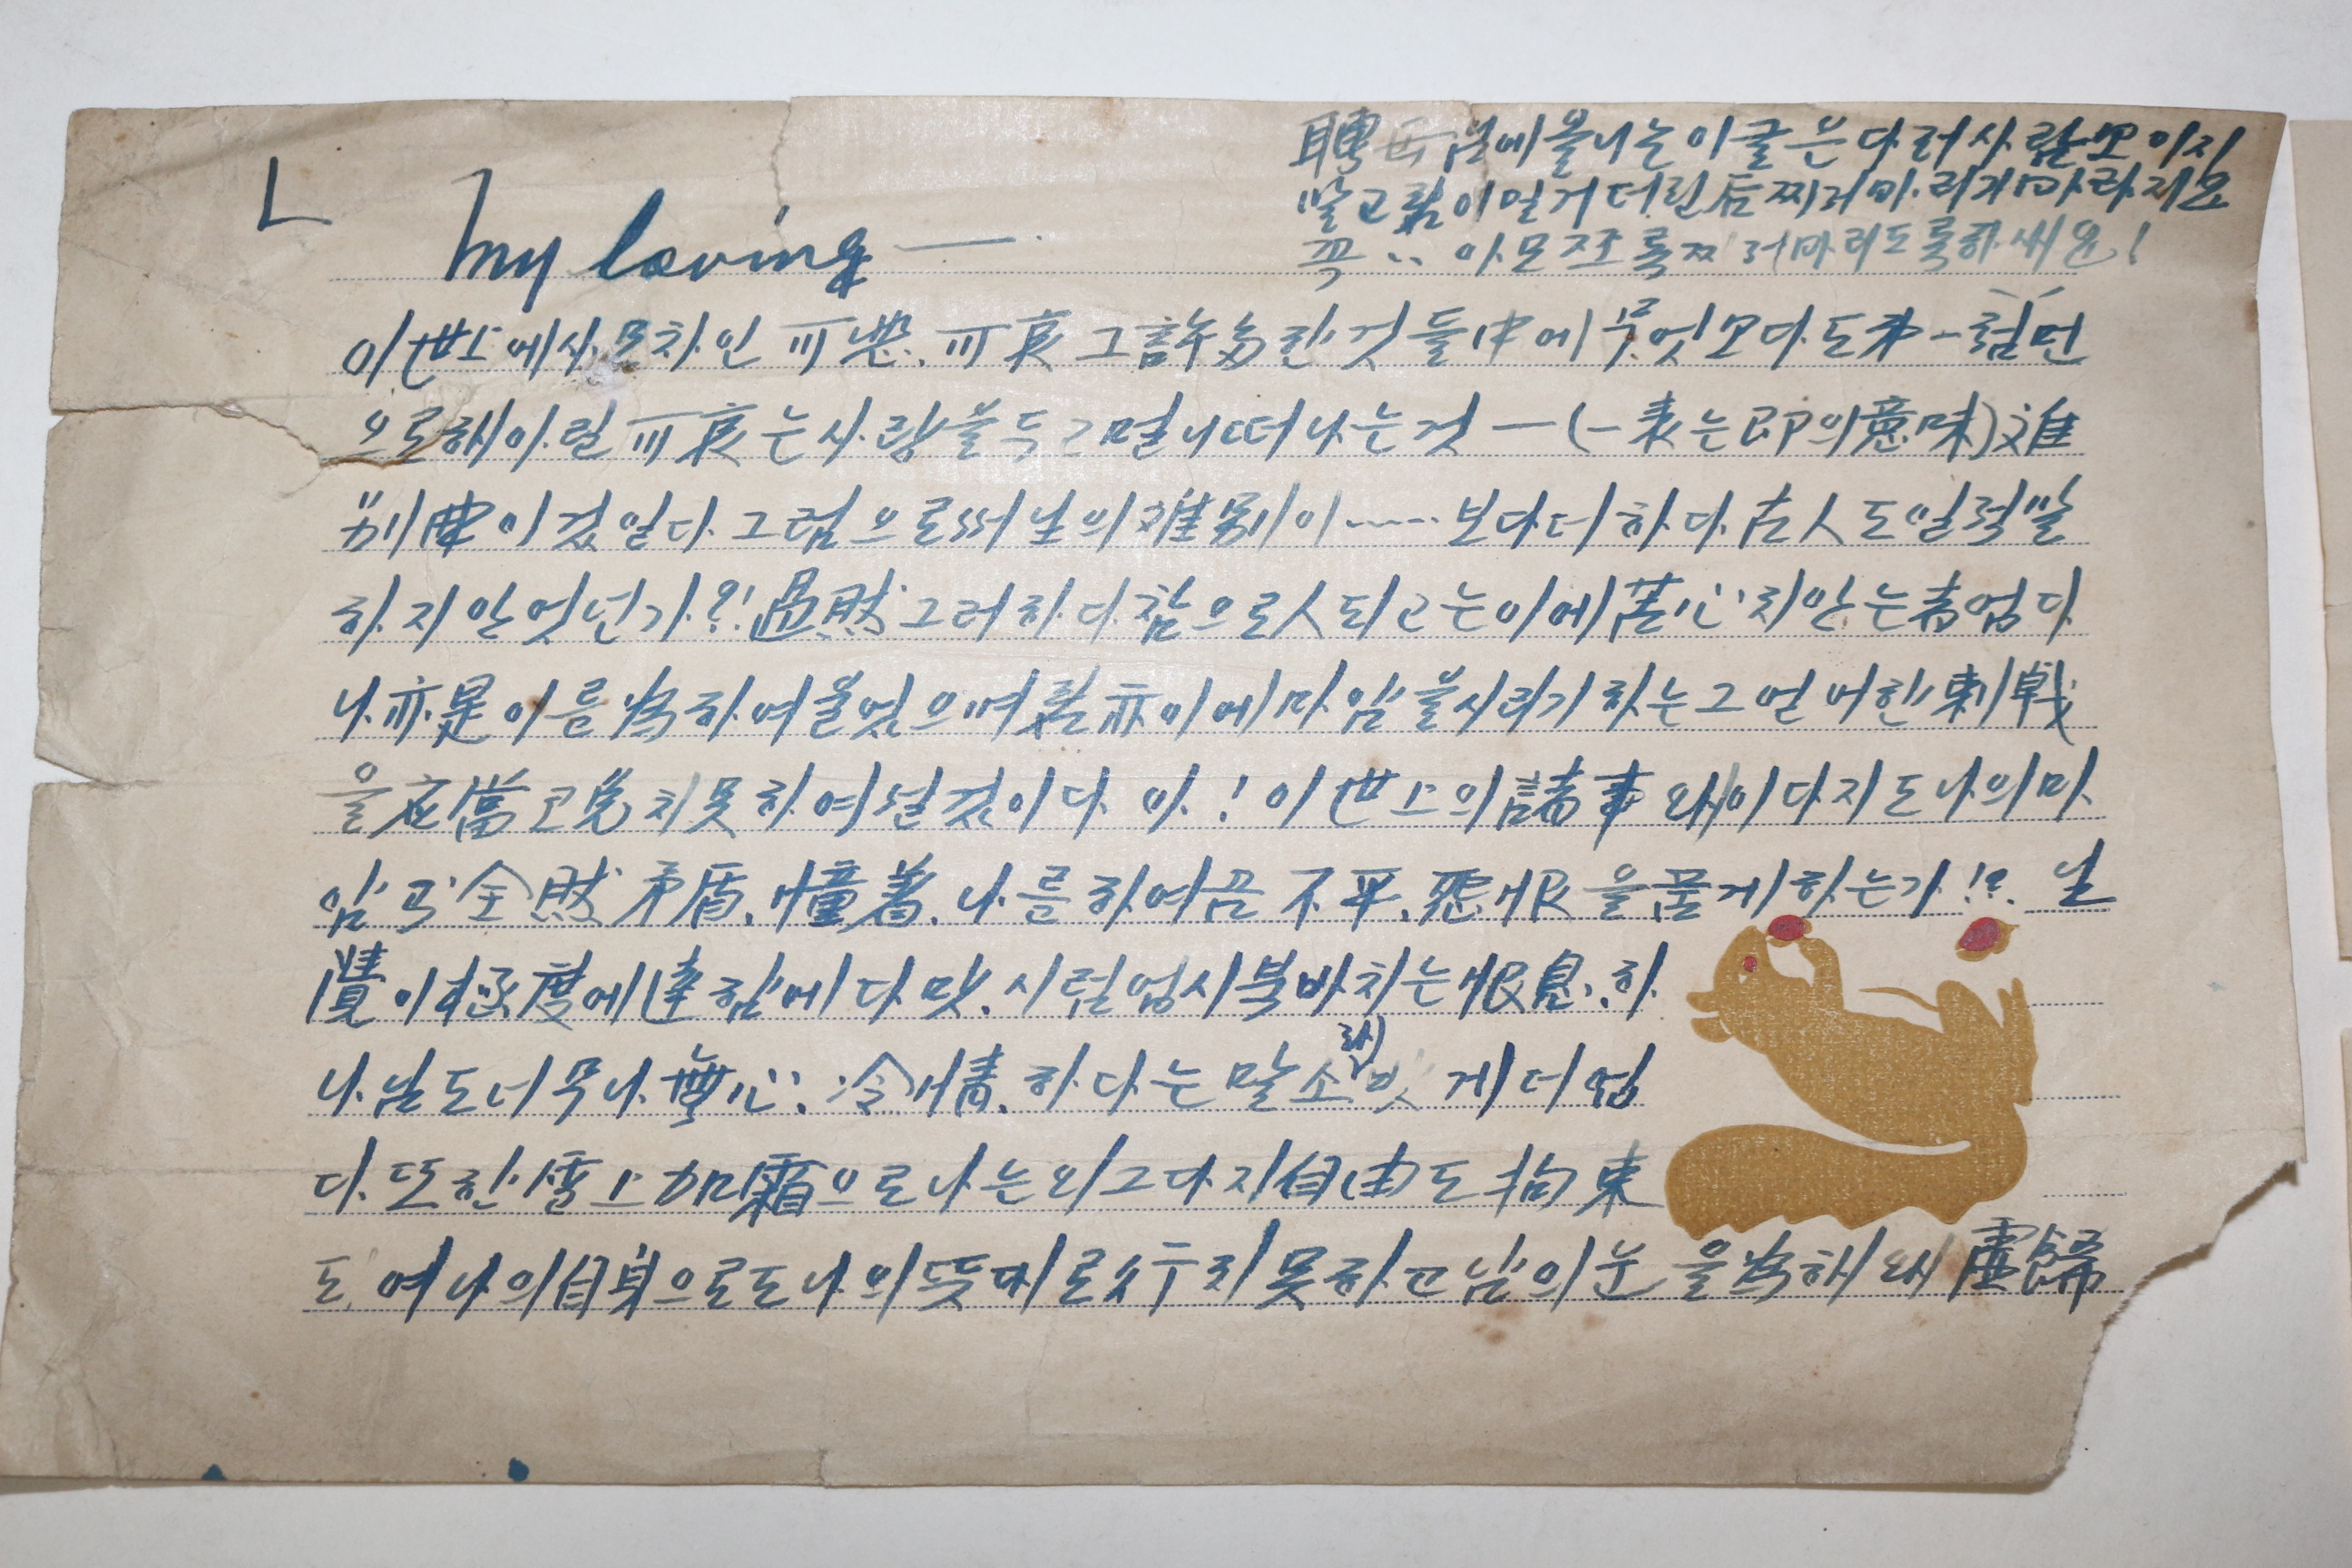 My loving —
聘岳님에 올니는 이 글은 다러 사람 모이지
말고 님이 일거더린 后 찌저바리기 바라지요
꼭.. 아모쪼록 찌저바리도록 하세요!
이 世上에 사모차인 可悲. 可哀 그 許多한 것들 中에 무엇모다도 第一 첨먼
으로 해아릴 可哀는 사랑을 두고 멀니 떠나는 것 — (一表는 即의 意味)
別 이겠일다 그럼으로써 生의 離別이…… 보다 더하다 古人도 일럭 말
하지 안엇넌가?! 過然 그러하다 참으로 人되고는 이에 苦心치 안는 者 업다
나 亦是 이를 爲하여 울엇으며 님 亦 이에 마암을 시러기 하는 그 언 어한 刺戟
을 应當고 免치 못하여 널 것이다 아! 이 世上의 諸事 왜 이다지도 나의 마
암과 全然 矛盾. 憧着. 나를 하여끔 不平. 怨恨을 품게 하는가!?. 난
憤이 極度에 達함에 다맛. 시럼업시 북바치는 恨息. 하
나 남도 너무나 無心. 冷情. 하다는 말 소 밧게 더 업
다 또한 雪上加霜으로 나는 외 그다지 自由도 拘束
도 여 나의 自身으로도 나의 뜻대로 行치 못하고 남의 눈을 爲해 왜 虛歸